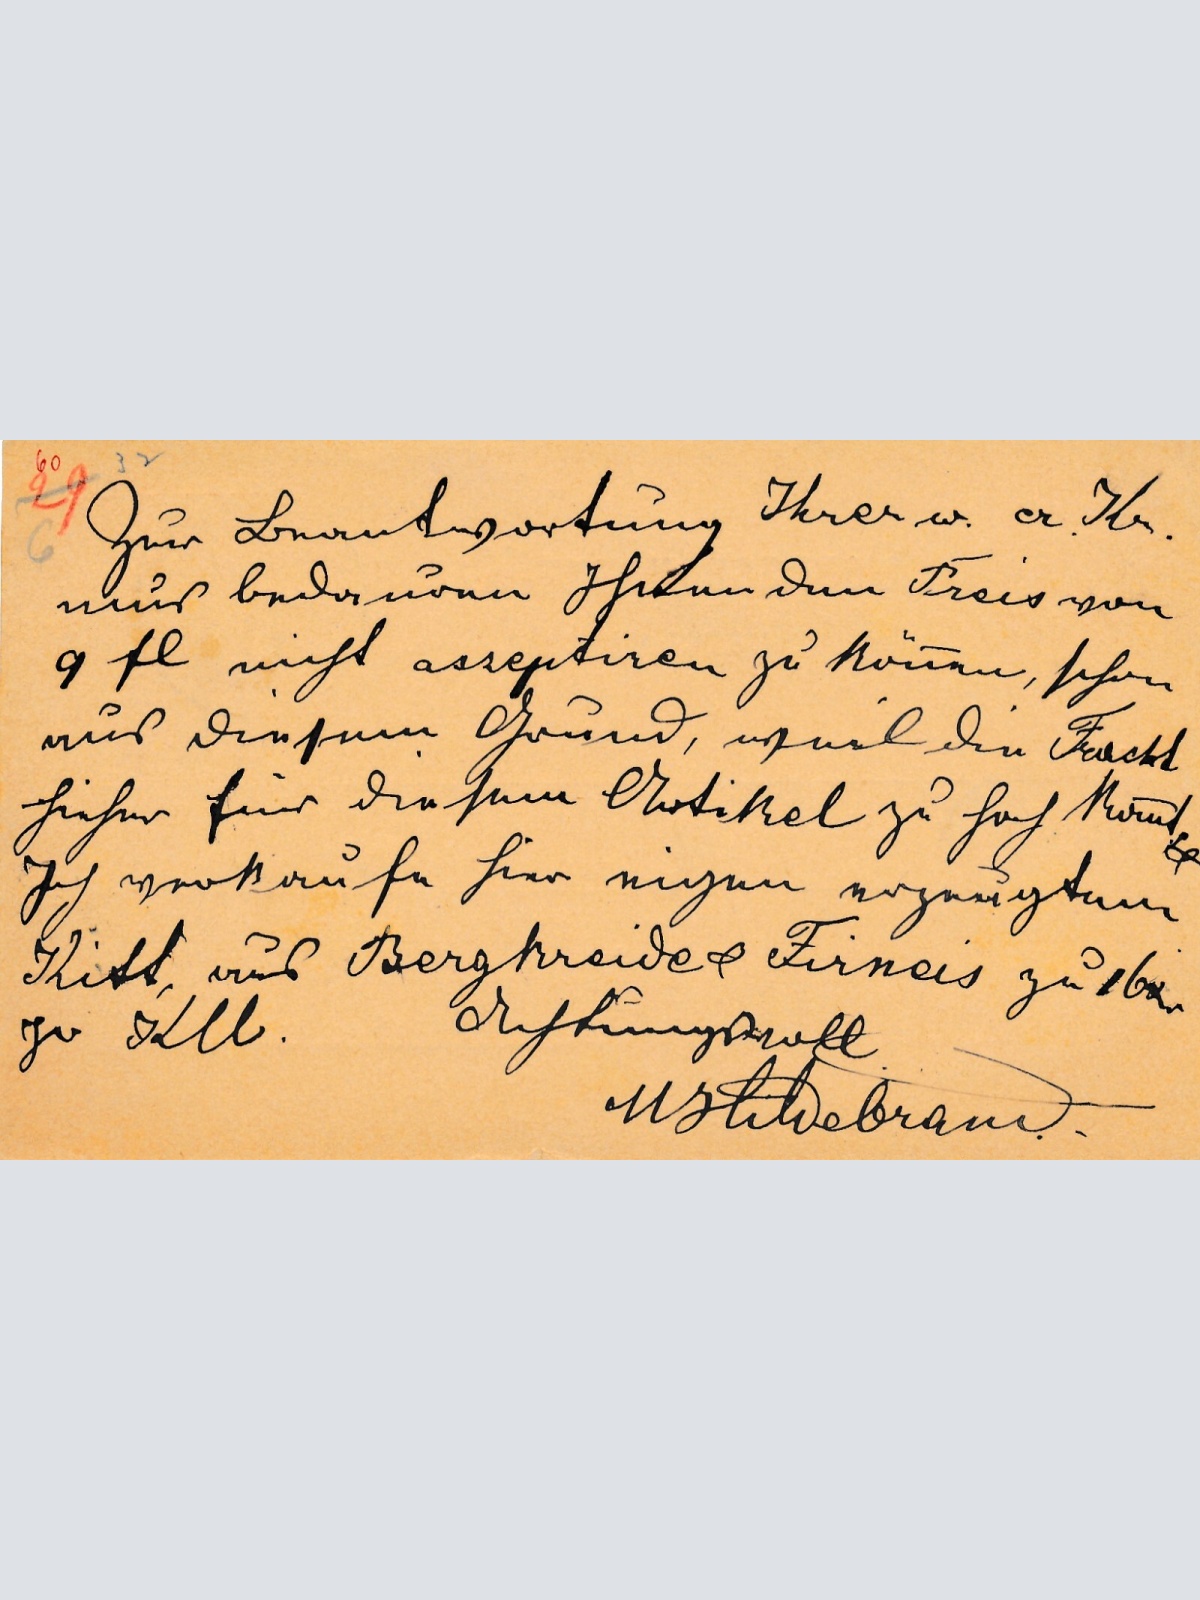 60
29
32
6
Zur Beantwortung Ihrer w. cr. Kr.
mus bedauren Ihnen den Preis von
9 fl nicht aszeptiren zu kön̄en, schon
aus diesem Grund, weil die Fracht
hieher für diesem Artikel zu hoch kom̄t
&
Ich verkaufe hier eigen erzeugtem
Kitt, aus Bergkreide & Firneis zu 16 kr
pr Kllo.
Achtungsvoll
Hildebrand.